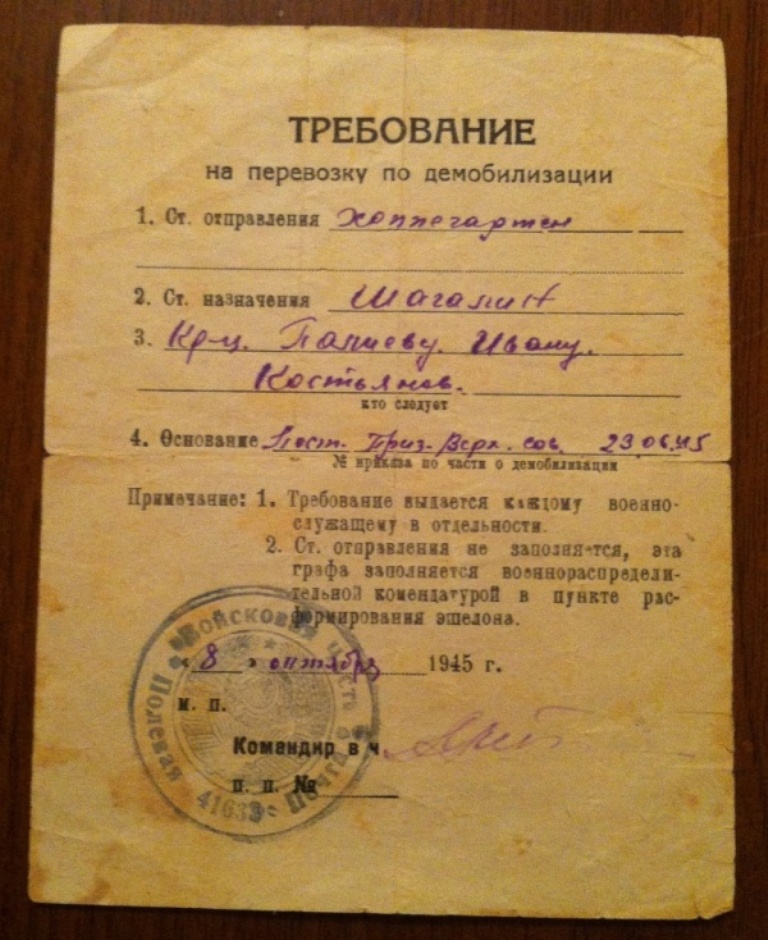 ТРЕБОВАНИЕ
на перевозку по демобилизации
1. Ст. отправления Хоппегартен
2. Ст. назначения Шагалин
3. Кр-ц. Папиеву. Ивану.
Костьянов.
кто следует
4. Основание Пост. През. Верх. сов. 23.06.45
№ приказа по части о демобилизации
Примечание: 1. Требование выдается каждому военно-
служащему в отдельности.
2. Ст. отправления не заполняется, эта
графа заполняется военнораспредели-
тельной комендатурой в пункте рас-
формирования эшелона.
« 8 » октября 1945 г.
м. п.
Командир в ч
п. п. №
Войсковая часть Полевая Почта 41633